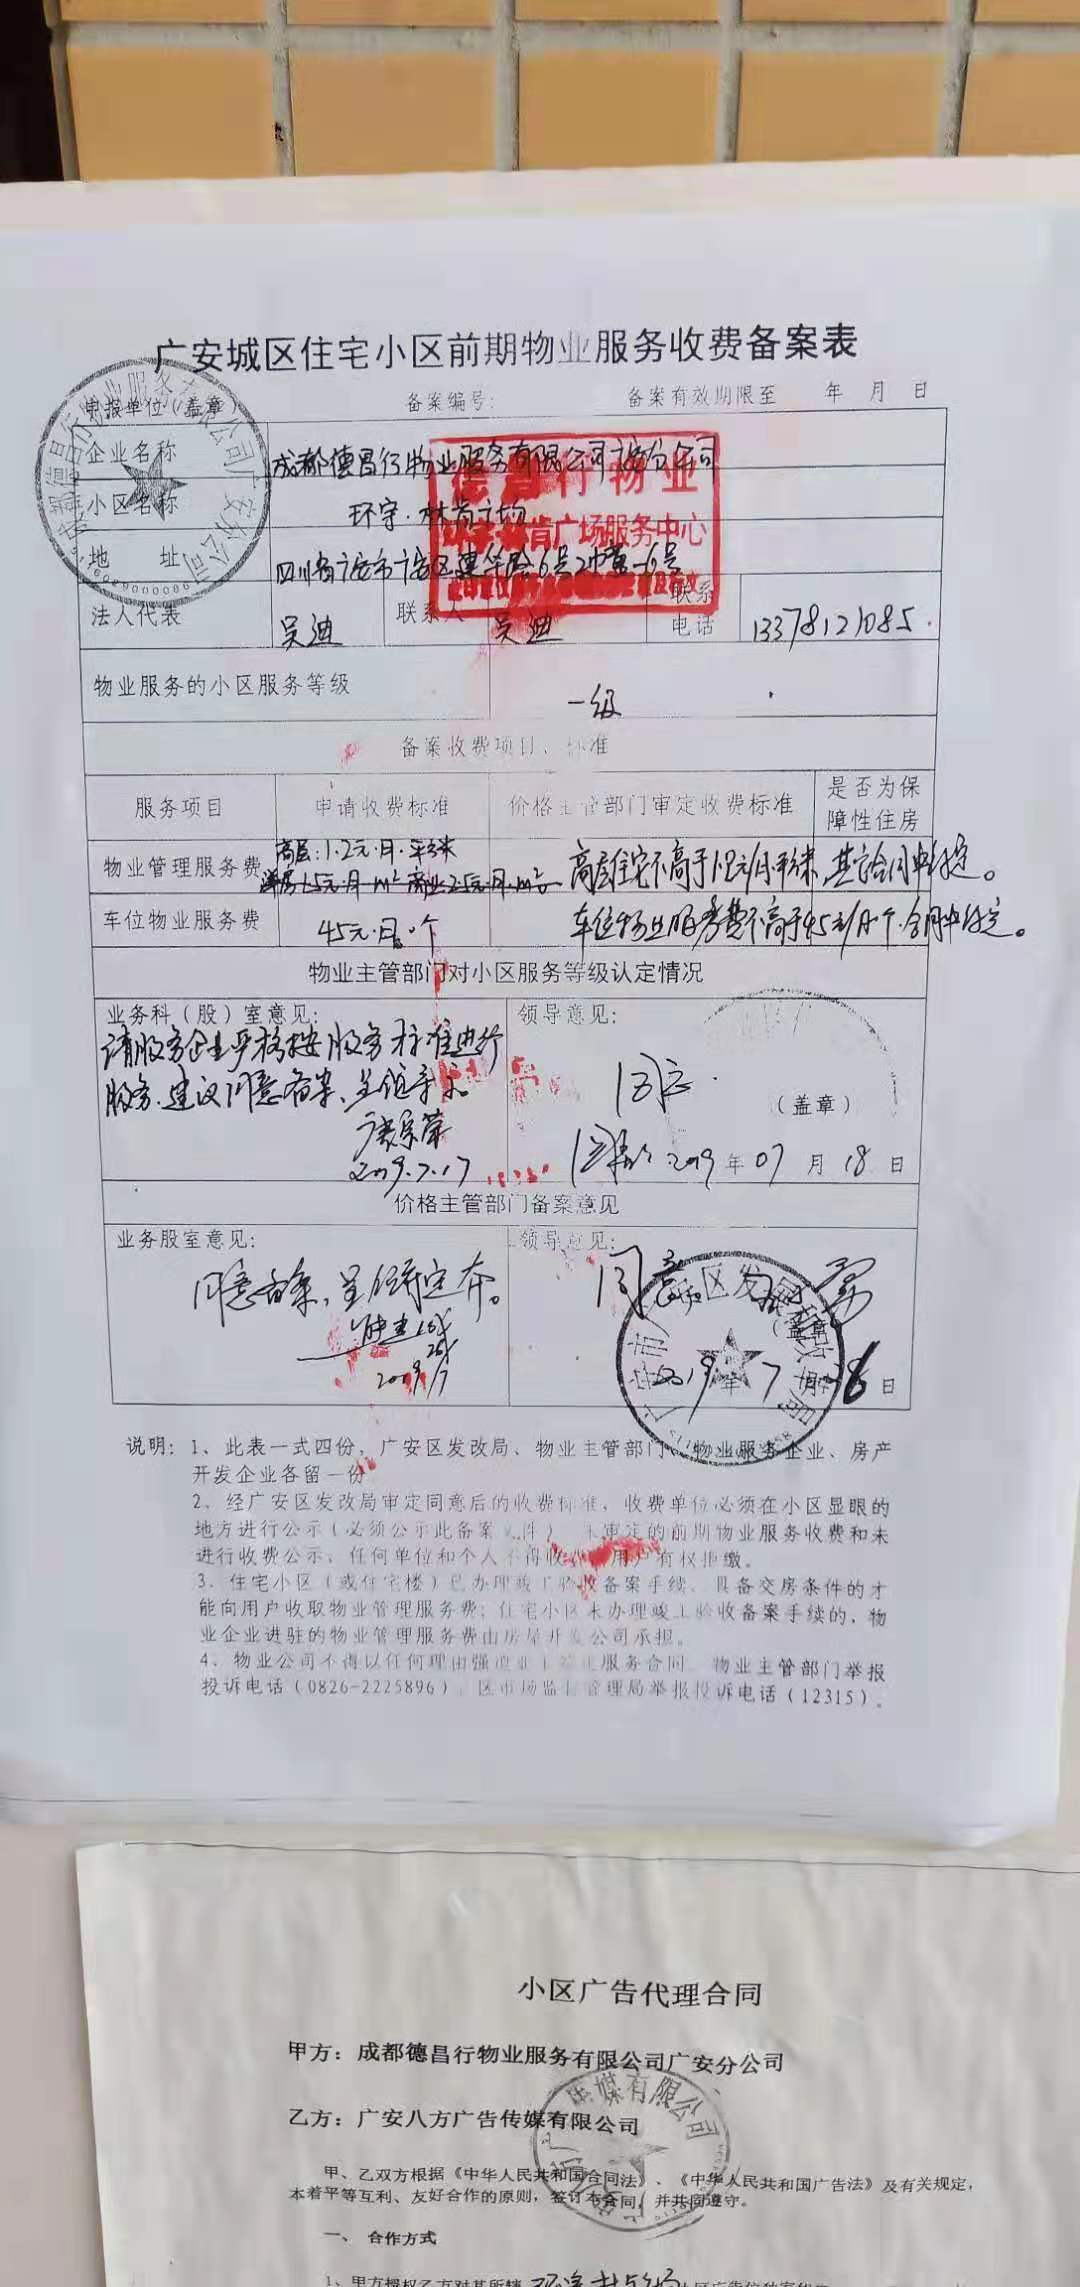 广安城区住宅小区前期物业服务收费备案表
申报单位（盖章） 备案编号: 备案有效期限至 年 月 日
企业名称 成都德昌行物业服务有限公司广安分公司
小区名称 环宇·林肯广场
地 址 四川省广安市广安区建华路6号
法人代表 吴迪 联系人 吴迪 联系电话 13378121085
德昌行物业
肯广场服务中心
物业服务的小区服务等级 一级
备案收费项目、标准
服务项目 申请收费标准 价格主管部门审定收费标准 是否为保障性住房
物业管理服务费 高层:1.2元·月·平方米 高层住宅不高于1.2元/月·平方米,其它合同中约定。
洋房1.5元·月·m² 商业2.5元·月·m²
车位物业服务费 45元·月·个 车位物业服务费不高于45元/月·个,合同中约定。
物业主管部门对小区服务等级认定情况
业务科（股）室意见: 领导意见:
请服务企业严格按服务标准进行
服务.建议同意备案,呈领导示
2019.7.17
同意.
（盖章）
2019年07月18日
价格主管部门备案意见
业务股室意见: 领导意见:
同意备案,呈领导定夺。
同意
（盖章）
2019年7月 日
说明: 1、此表一式四份，广安区发改局、物业主管部门、物业服务企业、房产
开发企业各留一份
2、经广安区发改局审定同意后的收费标准，收费单位必须在小区显眼的
地方进行公示（必须公示此备案文件） 未审定的前期物业服务收费和未
进行收费公示，任何单位和个人不得收 用户有权拒缴。
3、住宅小区（或住宅楼）已办理竣工验收备案手续、具备交房条件的才
能向用户收取物业管理服务费; 住宅小区未办理竣工验收备案手续的，物
业企业进驻的物业管理服务费由房屋开发公司承担。
4、物业公司不得以任何理由强迫业主签订服务合同。物业主管部门举报
投诉电话（0826-2225896），区市场监督管理局举报投诉电话（12315）。
小区广告代理合同
甲方：成都德昌行物业服务有限公司广安分公司
乙方：广安八方广告传媒有限公司
甲、乙双方根据《中华人民共和国合同法》、《中华人民共和国广告法》及有关规定，
本着平等互利、友好合作的原则，签订本合同，并共同遵守。
一、 合作方式
1、甲方授权乙方对其所辖